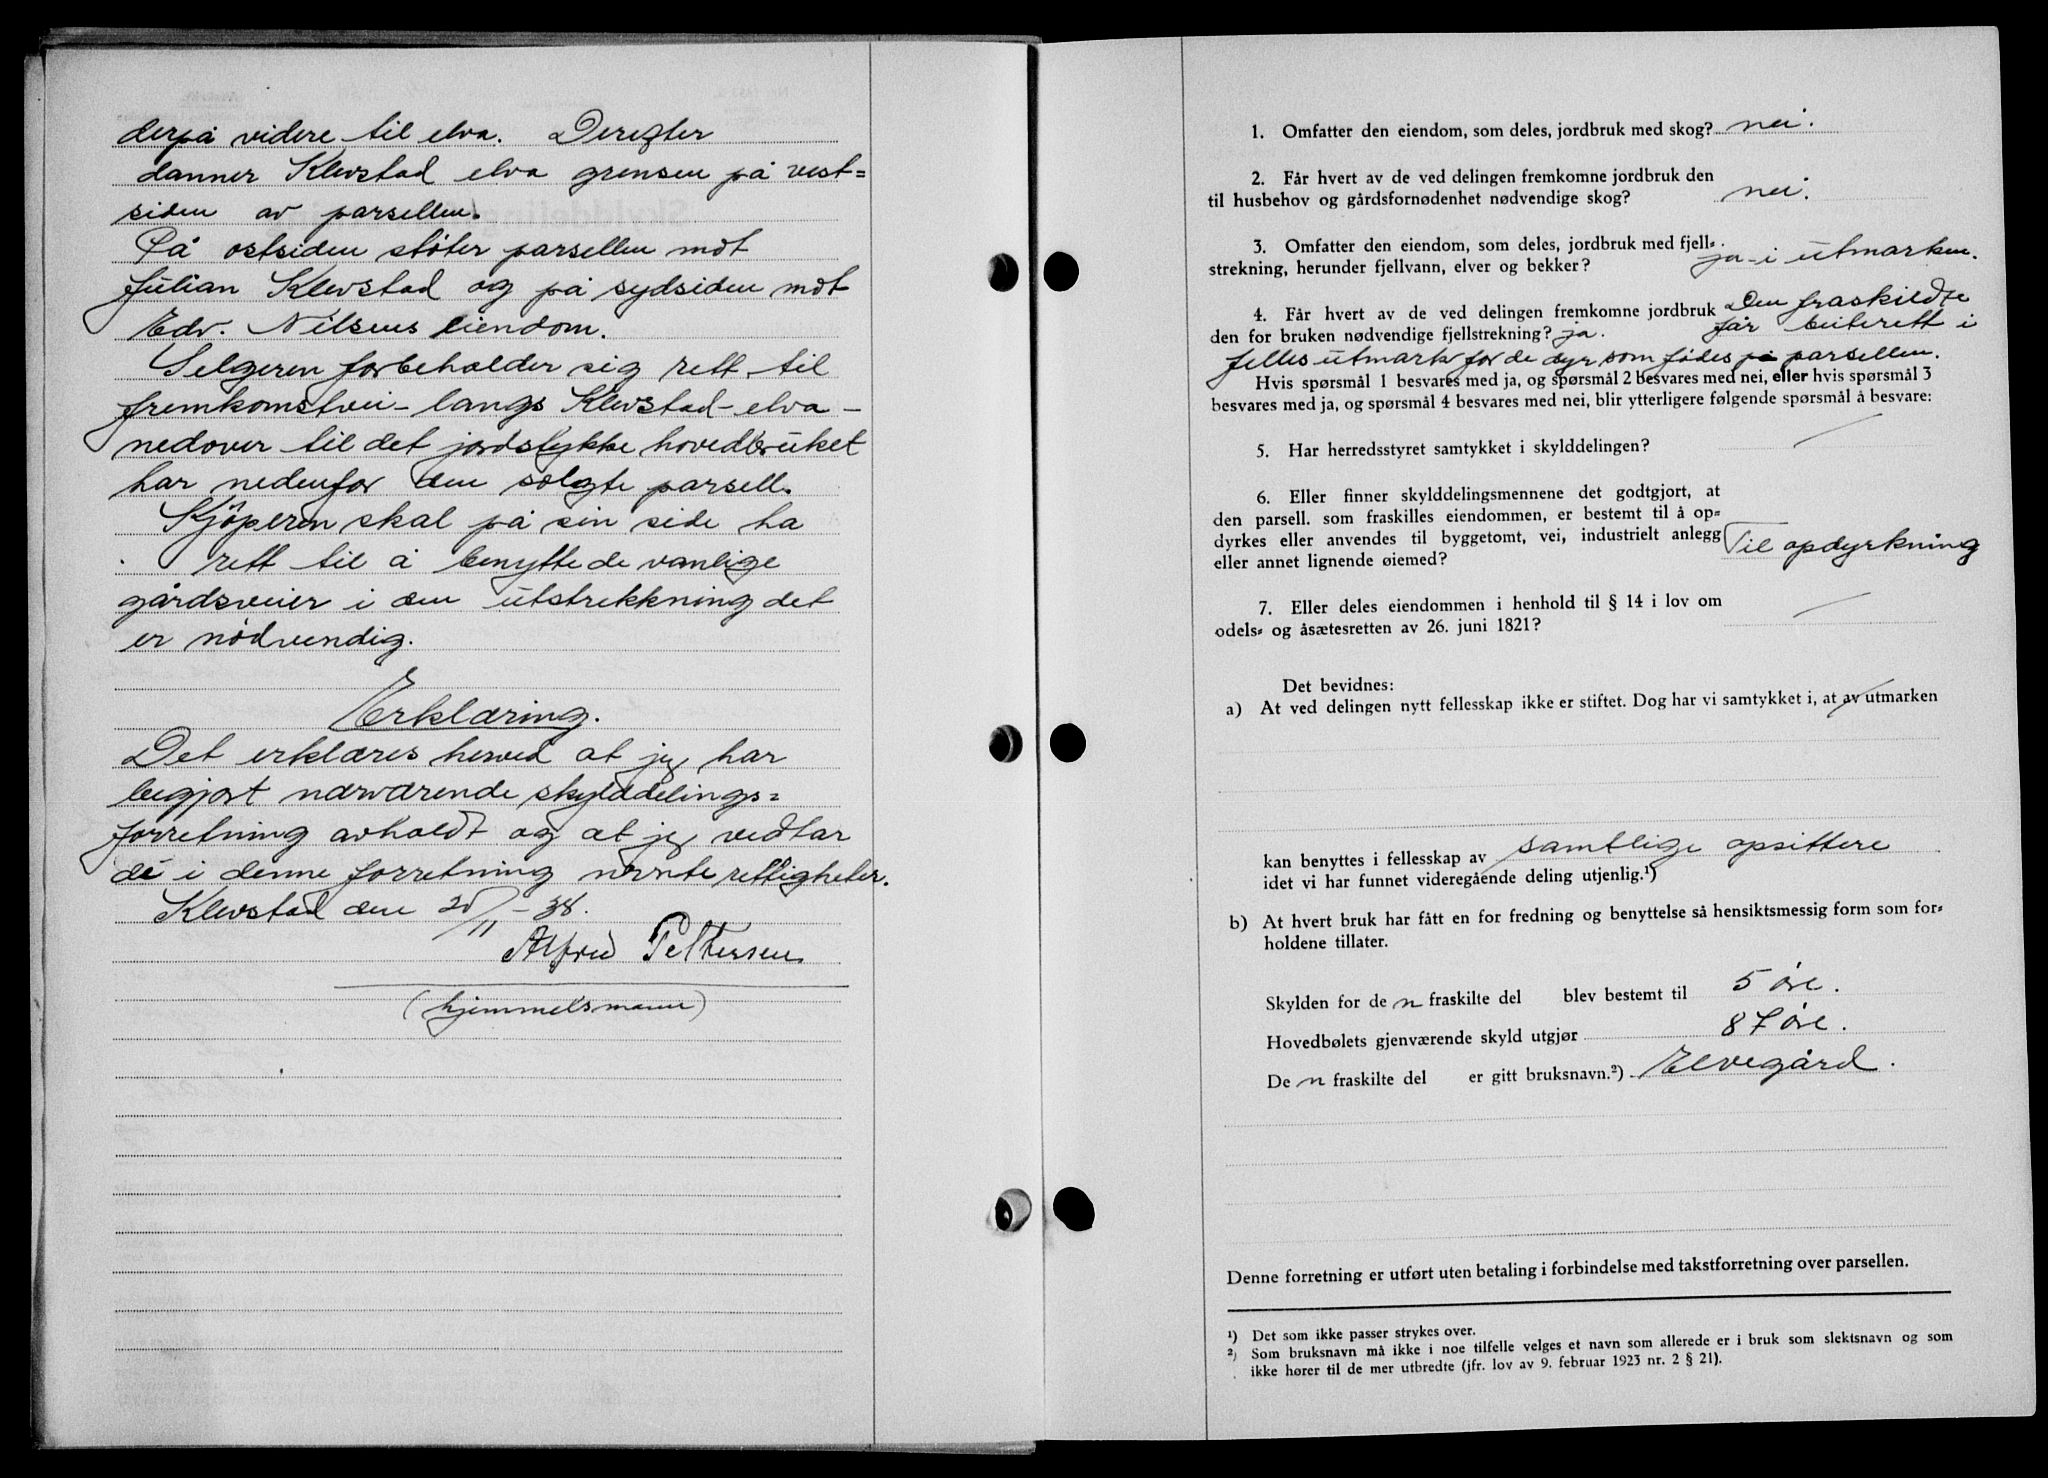 derpå videre til elva. Derefter
danner Klevstad elva grensen på vest=
siden av parsellen.
På østsiden støter parsellen mot
Julian Klevstad og på sydsiden mot
Edv. Nilsens eiendom.
Selgeren forbeholder sig rett til
fremkomstvei langs Klevstad-elva -
nedover til det jordstykke hovedbruket
har nedenfor den solgte parsell.
Kjøperen skal på sin side ha
rett til å benytte de vanlige
gårdsveier i den utstrekkning det
er nødvendig.
Erklæring.
Det erklæres herved at jeg har
begjært nærværende skylddelings=
forretning avholdt og at jeg vedtar
de i denne forretning nevnte rettigheter.
Klevstad den 20/11 - 38.
Alfred Pettersen
(hjemmelsmann)
1. Omfatter den eiendom, som deles, jordbruk med skog? nei.
2. Får hvert av de ved delingen fremkomne jordbruk den
til husbehov og gårdsfornødenhet nødvendige skog? nei.
3. Omfatter den eiendom, som deles, jordbruk med fjell=
strekning, herunder fjellvann, elver og bekker? ja - i utmarken.
4. Får hvert av de ved delingen fremkomne jordbruk Den fraskildte
den for bruken nødvendige fjellstrekning? ja. får beiterett i
felles utmark for de dyr som födes på parsellen.
Hvis spørsmål 1 besvares med ja, og spørsmål 2 besvares med nei, eller hvis spørsmål 3
besvares med ja, og spørsmål 4 besvares med nei, blir ytterligere følgende spørsmål å besvare:
5. Har herredsstyret samtykket i skylddelingen?
6. Eller finner skylddelingsmennene det godtgjort, at
den parsell. som fraskilles eiendommen, er bestemt til å op=
dyrkes eller anvendes til byggetomt, vei, industrielt anlegg
eller annet lignende øiemed? Til opdyrkning
7. Eller deles eiendommen i henhold til § 14 i lov om
odels= og åsætesretten av 26. juni 1821?
Det bevidnes:
a) At ved delingen nytt fellesskap ikke er stiftet. Dog har vi samtykket i, at av utmarken
kan benyttes i fellesskap av samtlige opsittere
idet vi har funnet videregående deling utjenlig.¹)
b) At hvert bruk har fått en for fredning og benyttelse så hensiktsmessig form som for=
holdene tillater.
Skylden for de n fraskilte del blev bestemt til 5 øre.
Hovedbølets gjenværende skyld utgjør 87 øre.
De n fraskilte del er gitt bruksnavn.²) Elvegård.
Denne forretning er utført uten betaling i forbindelse med takstforretning over parsellen.
¹) Det som ikke passer strykes over.
²) Som bruksnavn må ikke i noe tilfelle velges et navn som allerede er i bruk som slektsnavn og som
ikke hører til de mer utbredte (jfr. lov av 9. februar 1923 nr. 2 § 21).